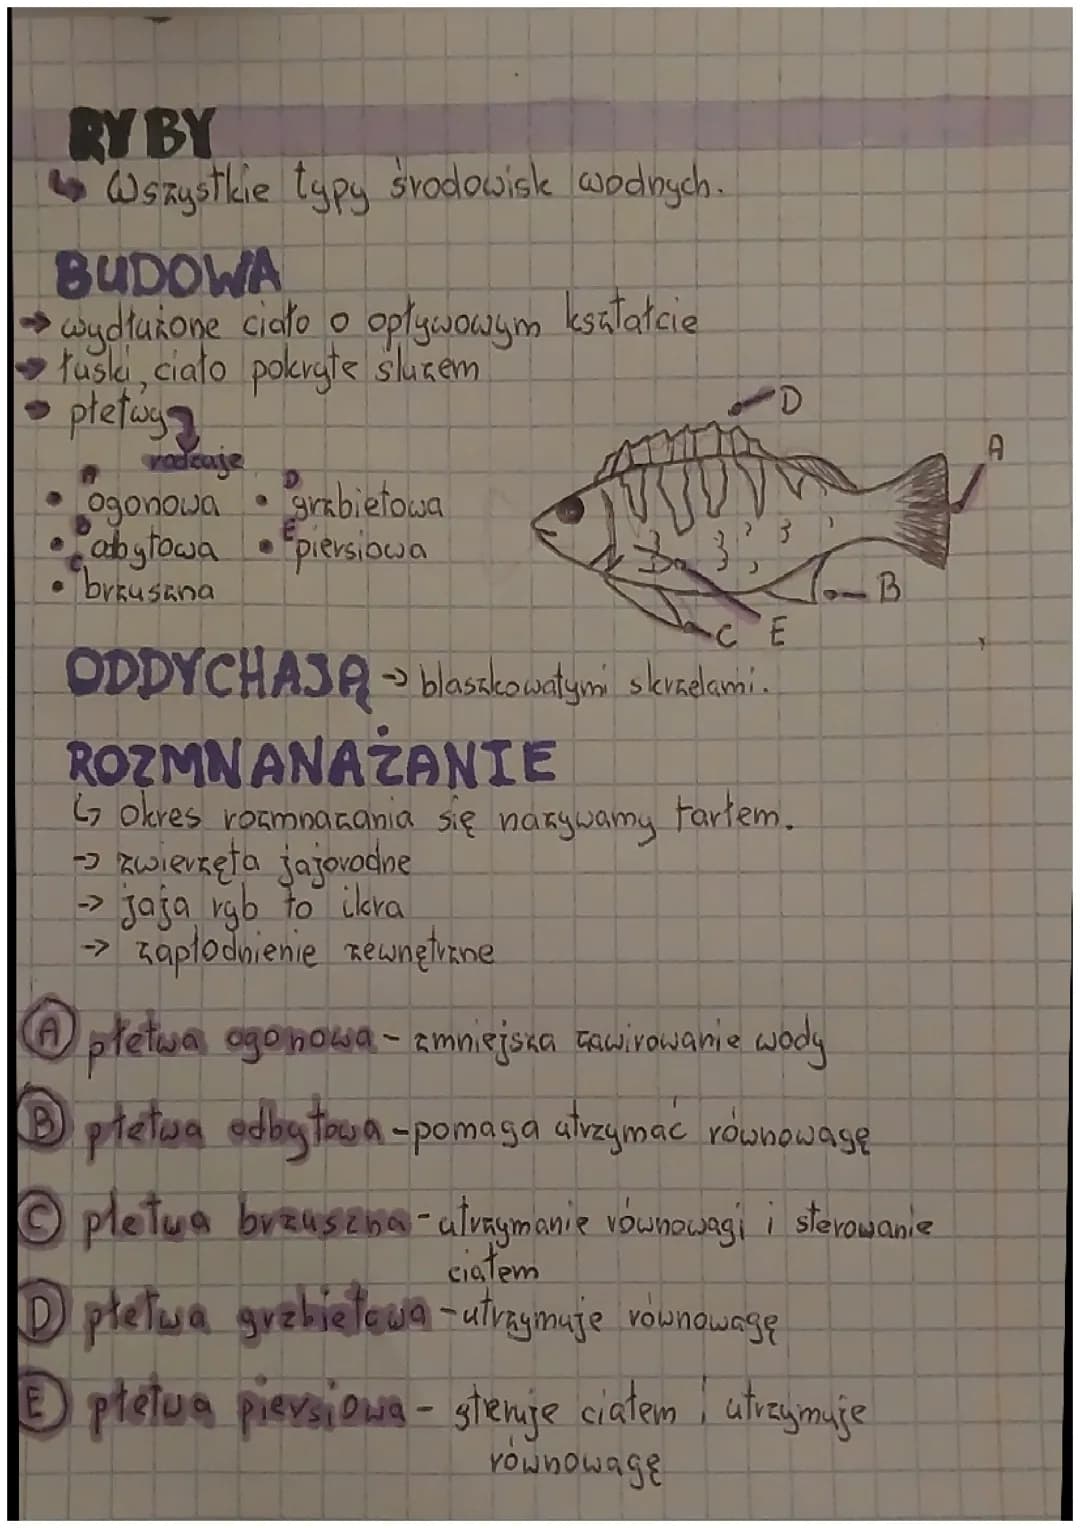 RYBY
↳ Wszystkie typy środowisk wodnych.
BUDOWA
→ wydłużone ciało o opływowym kształcie
→ łuski, ciało pokryte śluzem
→ płetwy
rodzaje
A D
• ogonowa • grzbietowa
B E
• odbytowa • piersiowa
C
• brzuszna
D
A
B
C E
ODDYCHAJĄ → blaszkowatymi skrzelami.
ROZMNANAŻANIE
↳ Okres rozmnażania się nazywamy tarłem.
→ zwierzęta jajorodne
→ jaja ryb to ikra
→ zapłodnienie zewnętrzne
A płetwa ogonowa - zmniejsza zawirowanie wody
B płetwa odbytowa - pomaga utrzymać równowagę
C płetwa brzuszna - utrzymanie równowagi i sterowanie
ciałem
D płetwa grzbietowa - utrzymuje równowagę
E płetwa piersiowa - steruje ciałem i utrzymuje
równowagę